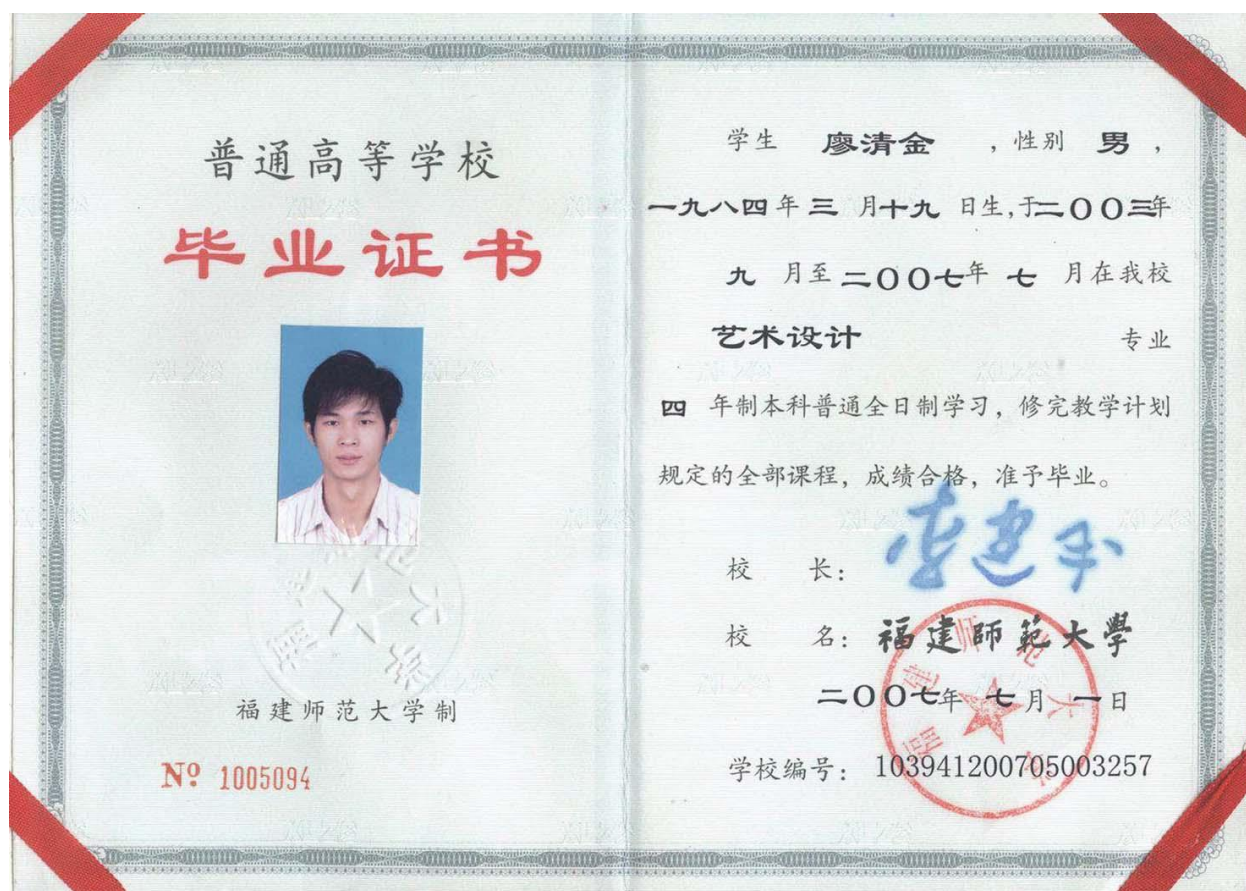 普通高等学校
毕业证书
福建师范大学制
Nº 1005094
学生 廖清金 ，性别 男 ，
一九八四年 三 月十九 日生,于二00三年
九 月至二00七年 七 月在我校
艺术设计 专业
四 年制本科普通全日制学习，修完教学计划
规定的全部课程，成绩合格，准予毕业。
校 长：
校 名：福建師範大學
二00七年 七 月 一 日
学校编号：103941200705003257
福建师范大学